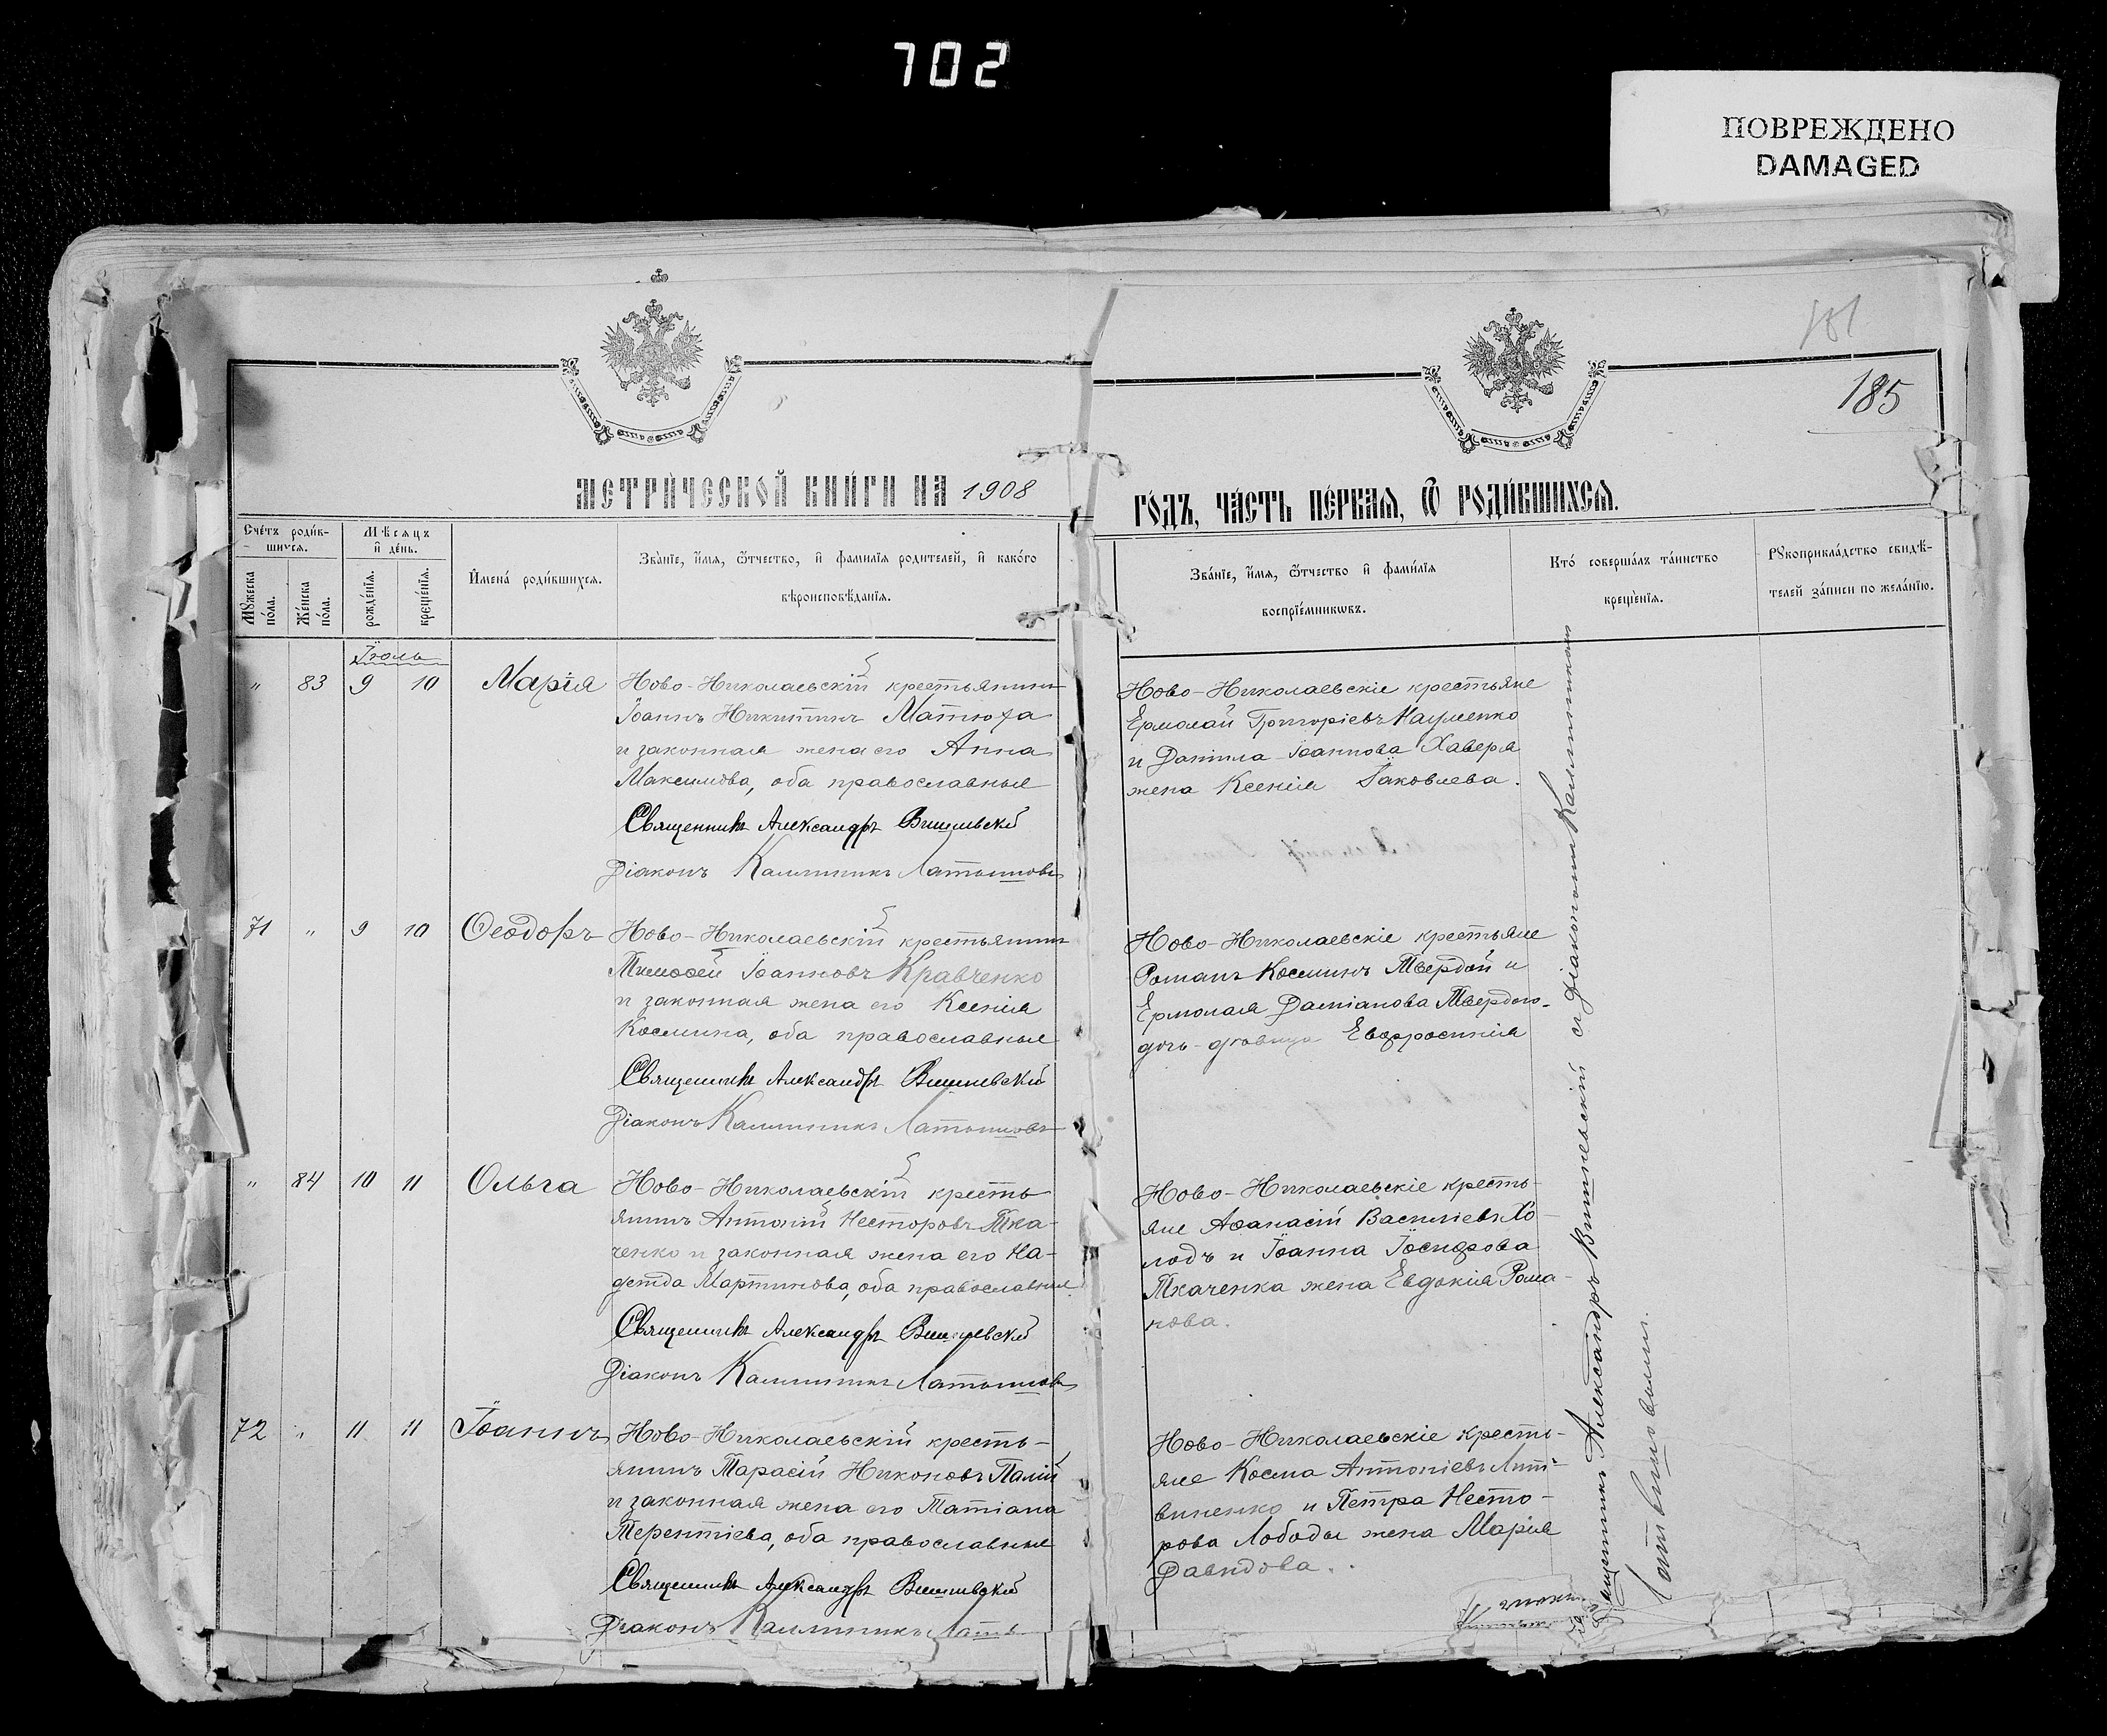 702
ПОВРЕЖДЕНО
DAMAGED
101
185
МЕТРИ́ЧЕСКОЙ КНИ́ГИ НА 1908
ГО́ДЪ, ЧА́СТЬ ПЕ́РВАЯ, Ѿ РОДИ́ВШИХСЯ.
Сче́тъ роди́в-
шихся.
Мѣсяцъ
и де́нь.
Му́жеска
по́ла.
Же́нска
по́ла.
рожде́нія.
креще́нія.
Имена́ роди́вшихся.
Зва́ніе, и́мя, ѻ́тчество, и фами́лія роди́телей, и како́го
вѣроисповѣ́данія.
Зва́ніе, и́мя, ѻ́тчество и фами́лія
воспріе́мниковъ.
Кто́ соверша́лъ та́инство
креще́нія.
Рукоприкла́дство свидѣ́-
телей за́писи по жела́нію.
Іюль
" 83 9 10 Марія
Ново-Николаевскій крестьянинъ
Іоаннъ Никитинъ Матюха
и законная жена его Анна
Максимова, оба православные
Священникъ Александръ Вишневскій
Діаконъ Каллиникъ
Ново-Николаевскіе крестьяне
Ермолай Григоріевъ Науменко
и Даніила Іоаннова Хаверя
жена Ксенія Іаковлева.
71 " 9 10 Ѳеодоръ
Ново-Николаевскій крестьянинъ
Тимоѳей Іоанновъ Кравченко
и законная жена его Ксенія
Космина, оба православные
Священникъ Александръ Вишневскій
Діаконъ Каллиникъ
Ново-Николаевскіе крестьяне
Романъ Косминъ Твердой и
Ермолая Даміанова Твердого-
дочь-дѣвица Евфросинія
" 84 10 11 Ольга
Ново-Николаевскій кресть
янинъ Антоній Несторовъ Тка-
ченко и законная жена его На-
дежда Мартинова, оба православные.
Священникъ Александръ Вишневскій
Діаконъ Каллиникъ
Ново-Николаевскіе кресть-
яне Аѳанасій Василіевъ Хо-
лодъ и Іоанна Іосифова
Ткаченка жена Евдокія Рома-
нова.
72 " 11 11 Іоаннъ
Ново-Николаевскій кресть-
янинъ Тарасій Никоновъ Палій
и законная жена его Татіана
Терентіева, оба православные
Священникъ Александръ Вишневскій
Діаконъ Каллиникъ
Ново-Николаевскіе кресть-
яне Косма Антоніевъ Лит-
виненко и Петра Несто-
рова Лободы жена Марія
Давидова.
Священникъ Александръ Вишневскій съ діакономъ Каллиникомъ